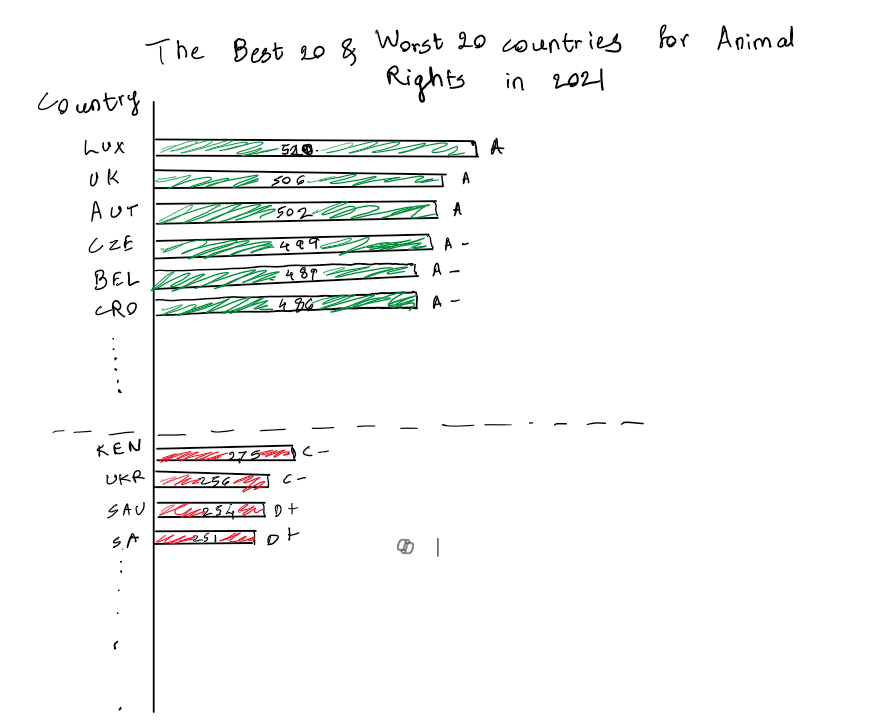 The Best 20 & Worst 20 countries for Animal
Rights in 2021
Country
LUX 510 A
UK 506 A
AUT 502 A
CZE 499 A-
BEL 489 A-
CRO 486 A-
KEN 275 C-
UKR 256 C-
SAU 254 D+
S.A 251 D+